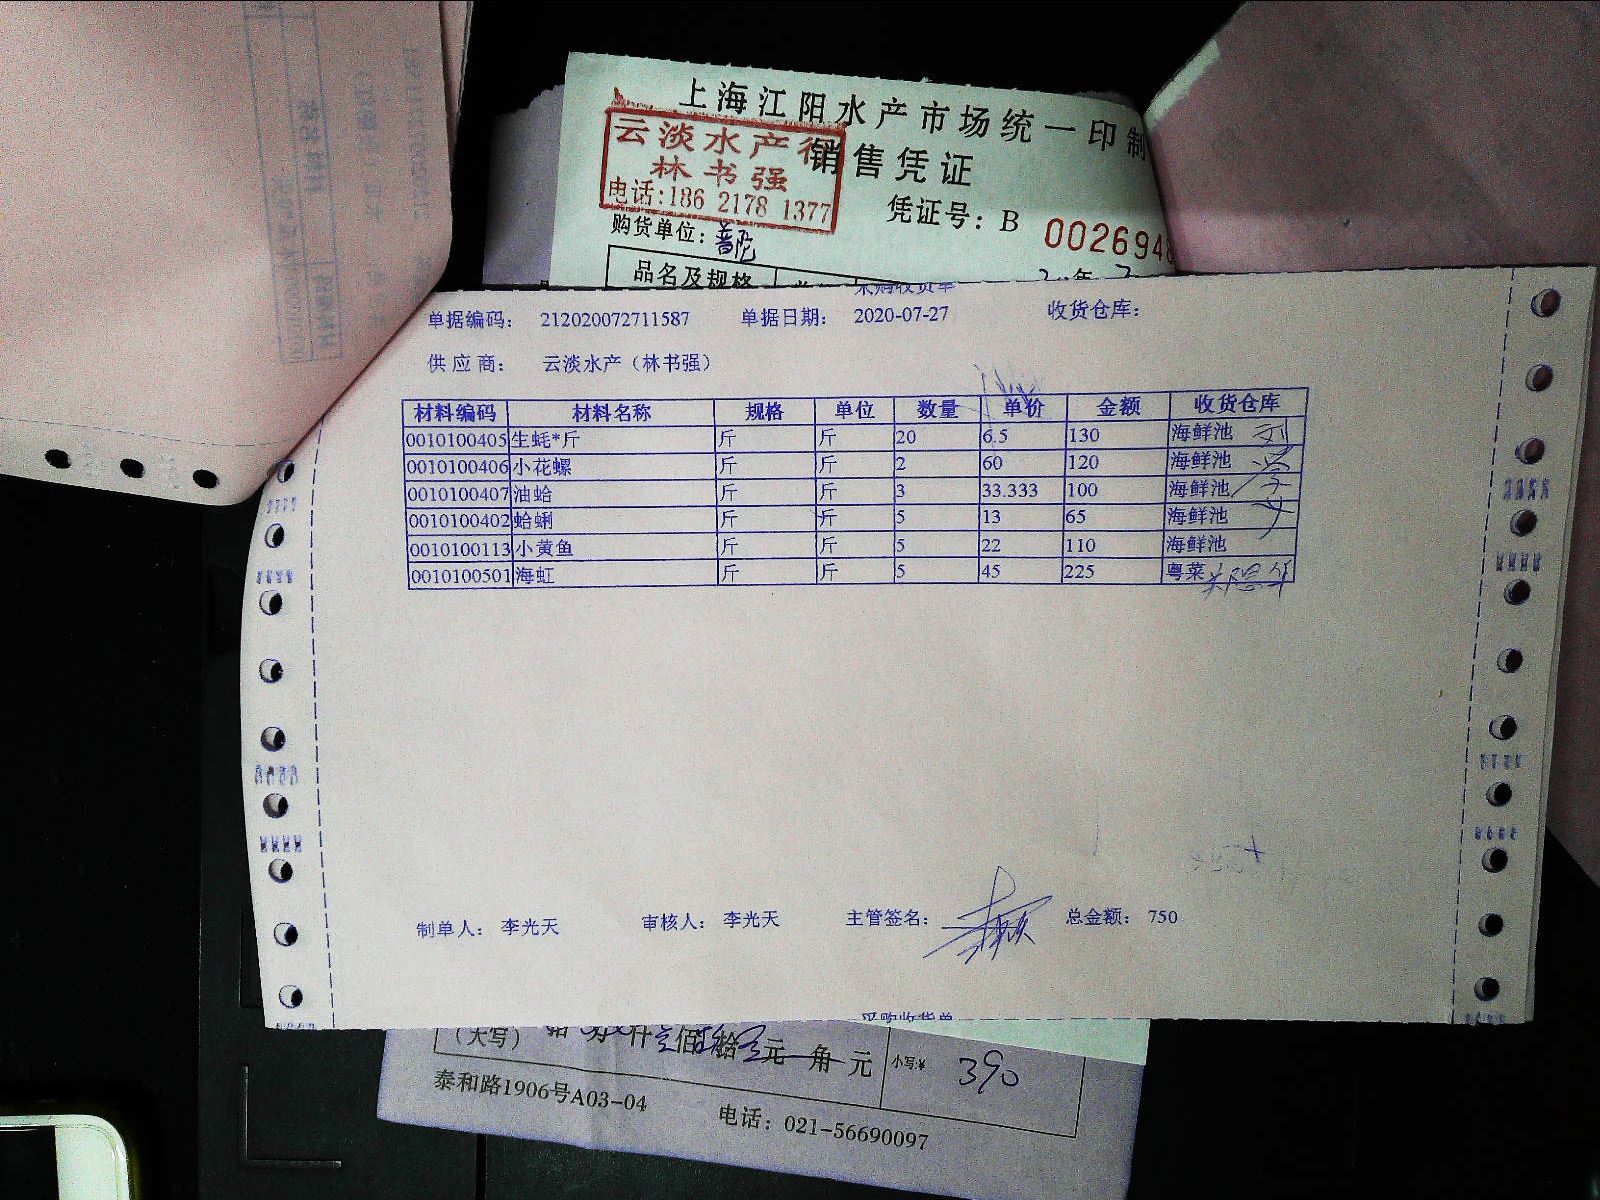 上海江阳水产市场统一印制
销售凭证
云淡水产行
林书强
电话:186 2178 1377
凭证号: B 0026948
购货单位: 普陀
品名及规格
采购收货单
单据编码: 212020072711587 单据日期: 2020-07-27 收货仓库:
供应商: 云淡水产（林书强）
材料编码 材料名称 规格 单位 数量 单价 金额 收货仓库
0010100405 生蚝*斤 斤 斤 20 6.5 130 海鲜池
0010100406 小花螺 斤 斤 2 60 120 海鲜池
0010100407 油蛤 斤 斤 3 33.333 100 海鲜池
0010100402 蛤蜊 斤 斤 5 13 65 海鲜池
0010100113 小黄鱼 斤 斤 5 22 110 海鲜池
0010100501 海虹 斤 斤 5 45 225 粤菜
制单人: 李光天 审核人: 李光天 主管签名: 总金额: 750
采购收货单
（大写） 拾 万 仟 佰 拾 元 角 元 小写:¥ 390
泰和路1906号A03-04 电话: 021-56690097